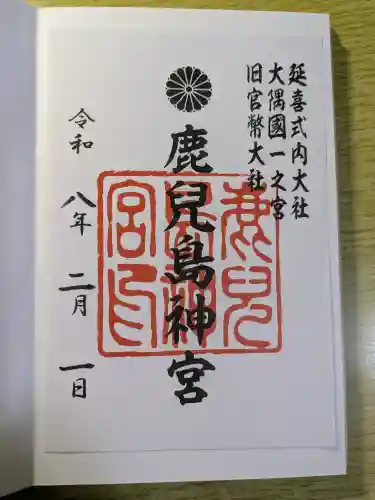 延喜式内大社
大隅國一之宮
旧官幣大社
鹿兒島神宮
鹿兒島神宮印
令和八年二月一日